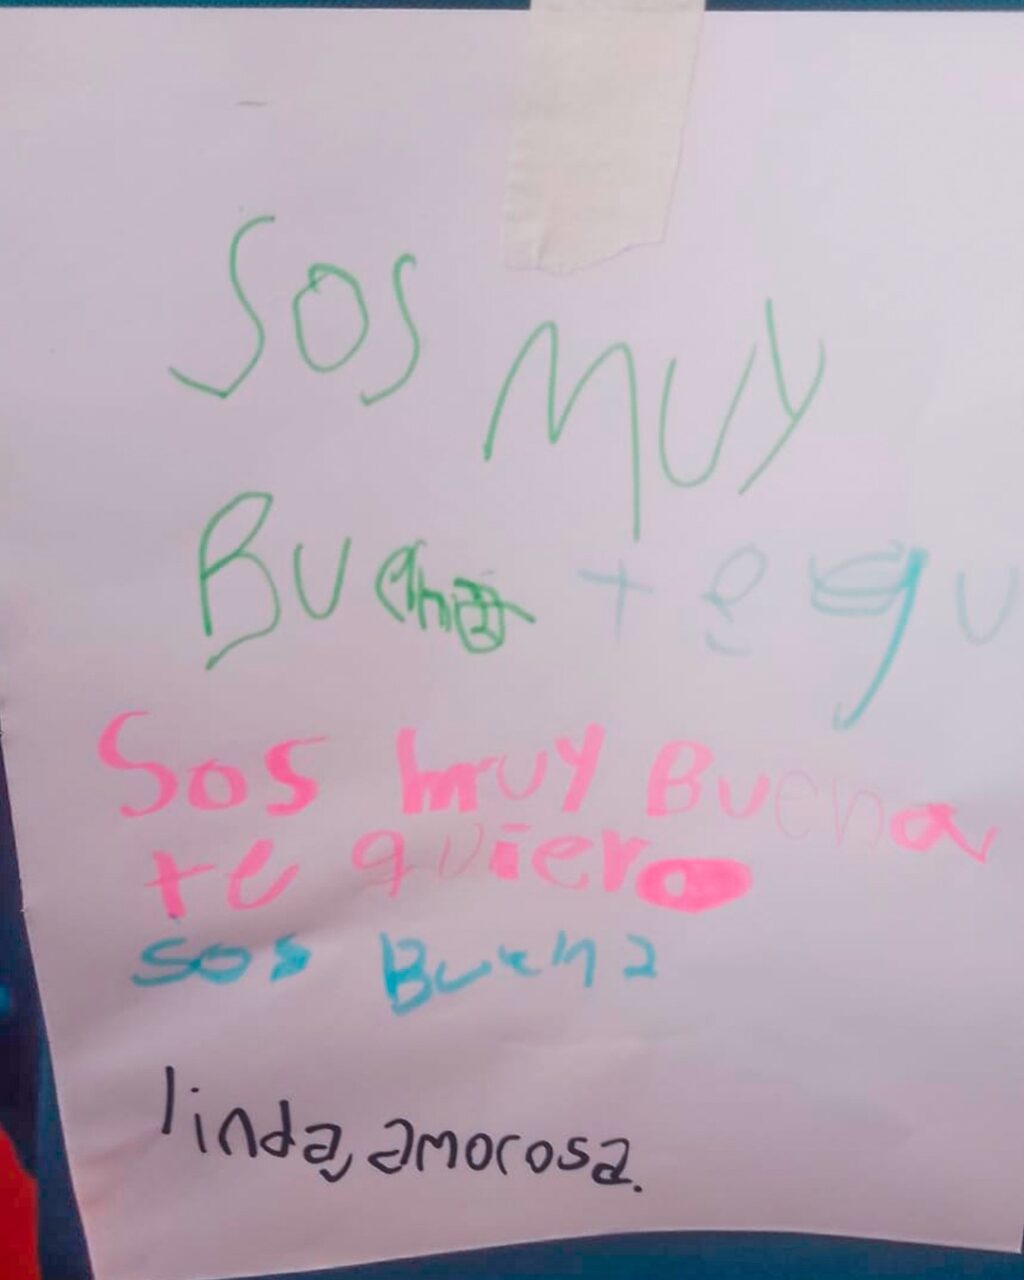 SOS MUY
BUena te qu
Sos muy Buena
te quiero
sos Buena
linda, amorosa.